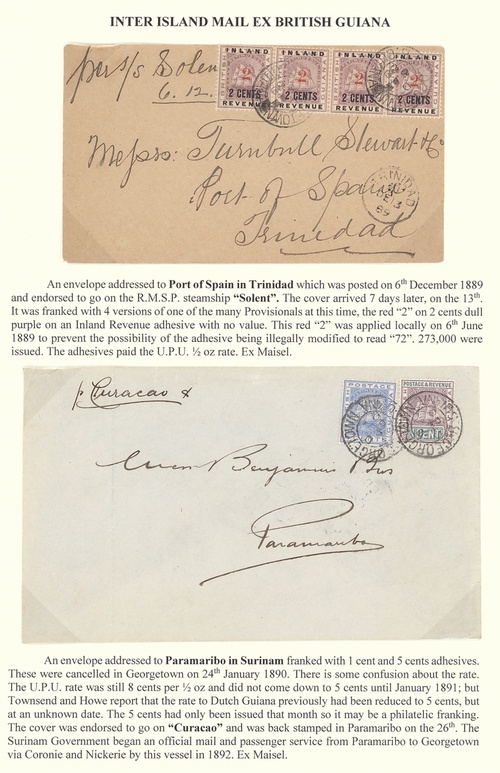 INTER ISLAND MAIL EX BRITISH GUIANA
per s/s Solen
6.12.
INLAND INLAND INLAND INLAND
2 2 2 2
2 CENTS 2 CENTS 2 CENTS 2 CENTS
REVENUE REVENUE REVENUE REVENUE
Messrs: Turnbull Stewart & Co
Port of Spain
Trinidad
TRINIDAD
DE 13
89
An envelope addressed to Port of Spain in Trinidad which was posted on 6th December 1889
and endorsed to go on the R.M.S.P. steamship “Solent”. The cover arrived 7 days later, on the 13th.
It was franked with 4 versions of one of the many Provisionals at this time, the red “2” on 2 cents dull
purple on an Inland Revenue adhesive with no value. This red “2” was applied locally on 6th June
1889 to prevent the possibility of the adhesive being illegally modified to read “72”. 273,000 were
issued. The adhesives paid the U.P.U. ½ oz rate. Ex Maisel.
p Curacao
POSTAGE POSTAGE & REVENUE
CENT
GEORGETOWN
Benjamins
Paramaribo
An envelope addressed to Paramaribo in Surinam franked with 1 cent and 5 cents adhesives.
These were cancelled in Georgetown on 24th January 1890. There is some confusion about the rate.
The U.P.U. rate was still 8 cents per ½ oz and did not come down to 5 cents until January 1891; but
Townsend and Howe report that the rate to Dutch Guiana previously had been reduced to 5 cents, but
at an unknown date. The 5 cents had only been issued that month so it may be a philatelic franking.
The cover was endorsed to go on “Curacao” and was back stamped in Paramaribo on the 26th. The
Surinam Government began an official mail and passenger service from Paramaribo to Georgetown
via Coronie and Nickerie by this vessel in 1892. Ex Maisel.